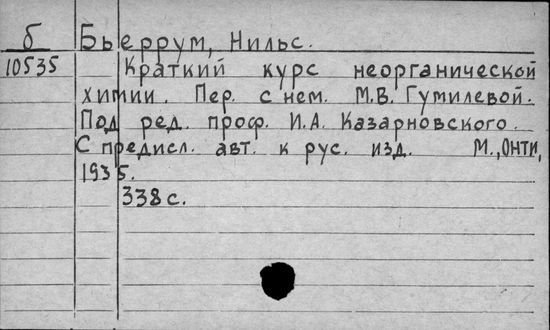 б Бьеррум, Нильс.
10535 Краткий курс неорганической
химии. Пер. с нем. М.В. Гумилевой.
Под ред. проф. И.А. Казарновского.
С предисл. авт. к рус. изд. М., Онти,
1935.
338 с.